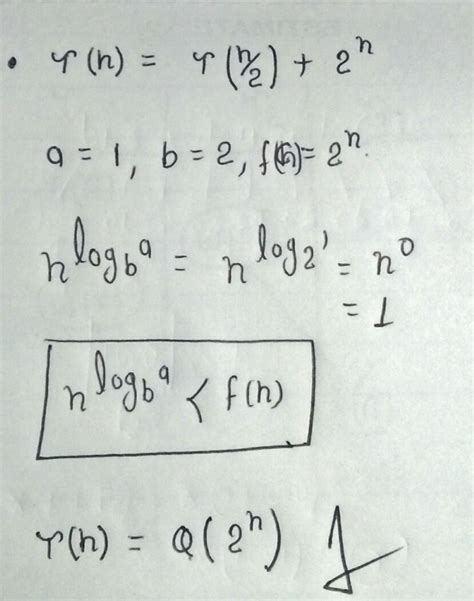 • T(n) = T(n/2) + 2^n
a = 1, b = 2, f(n) = 2^n.
n^log_b a = n^log_2 1 = n^0
= 1
n^log_b a < f(n)
T(n) = Q(2^n)